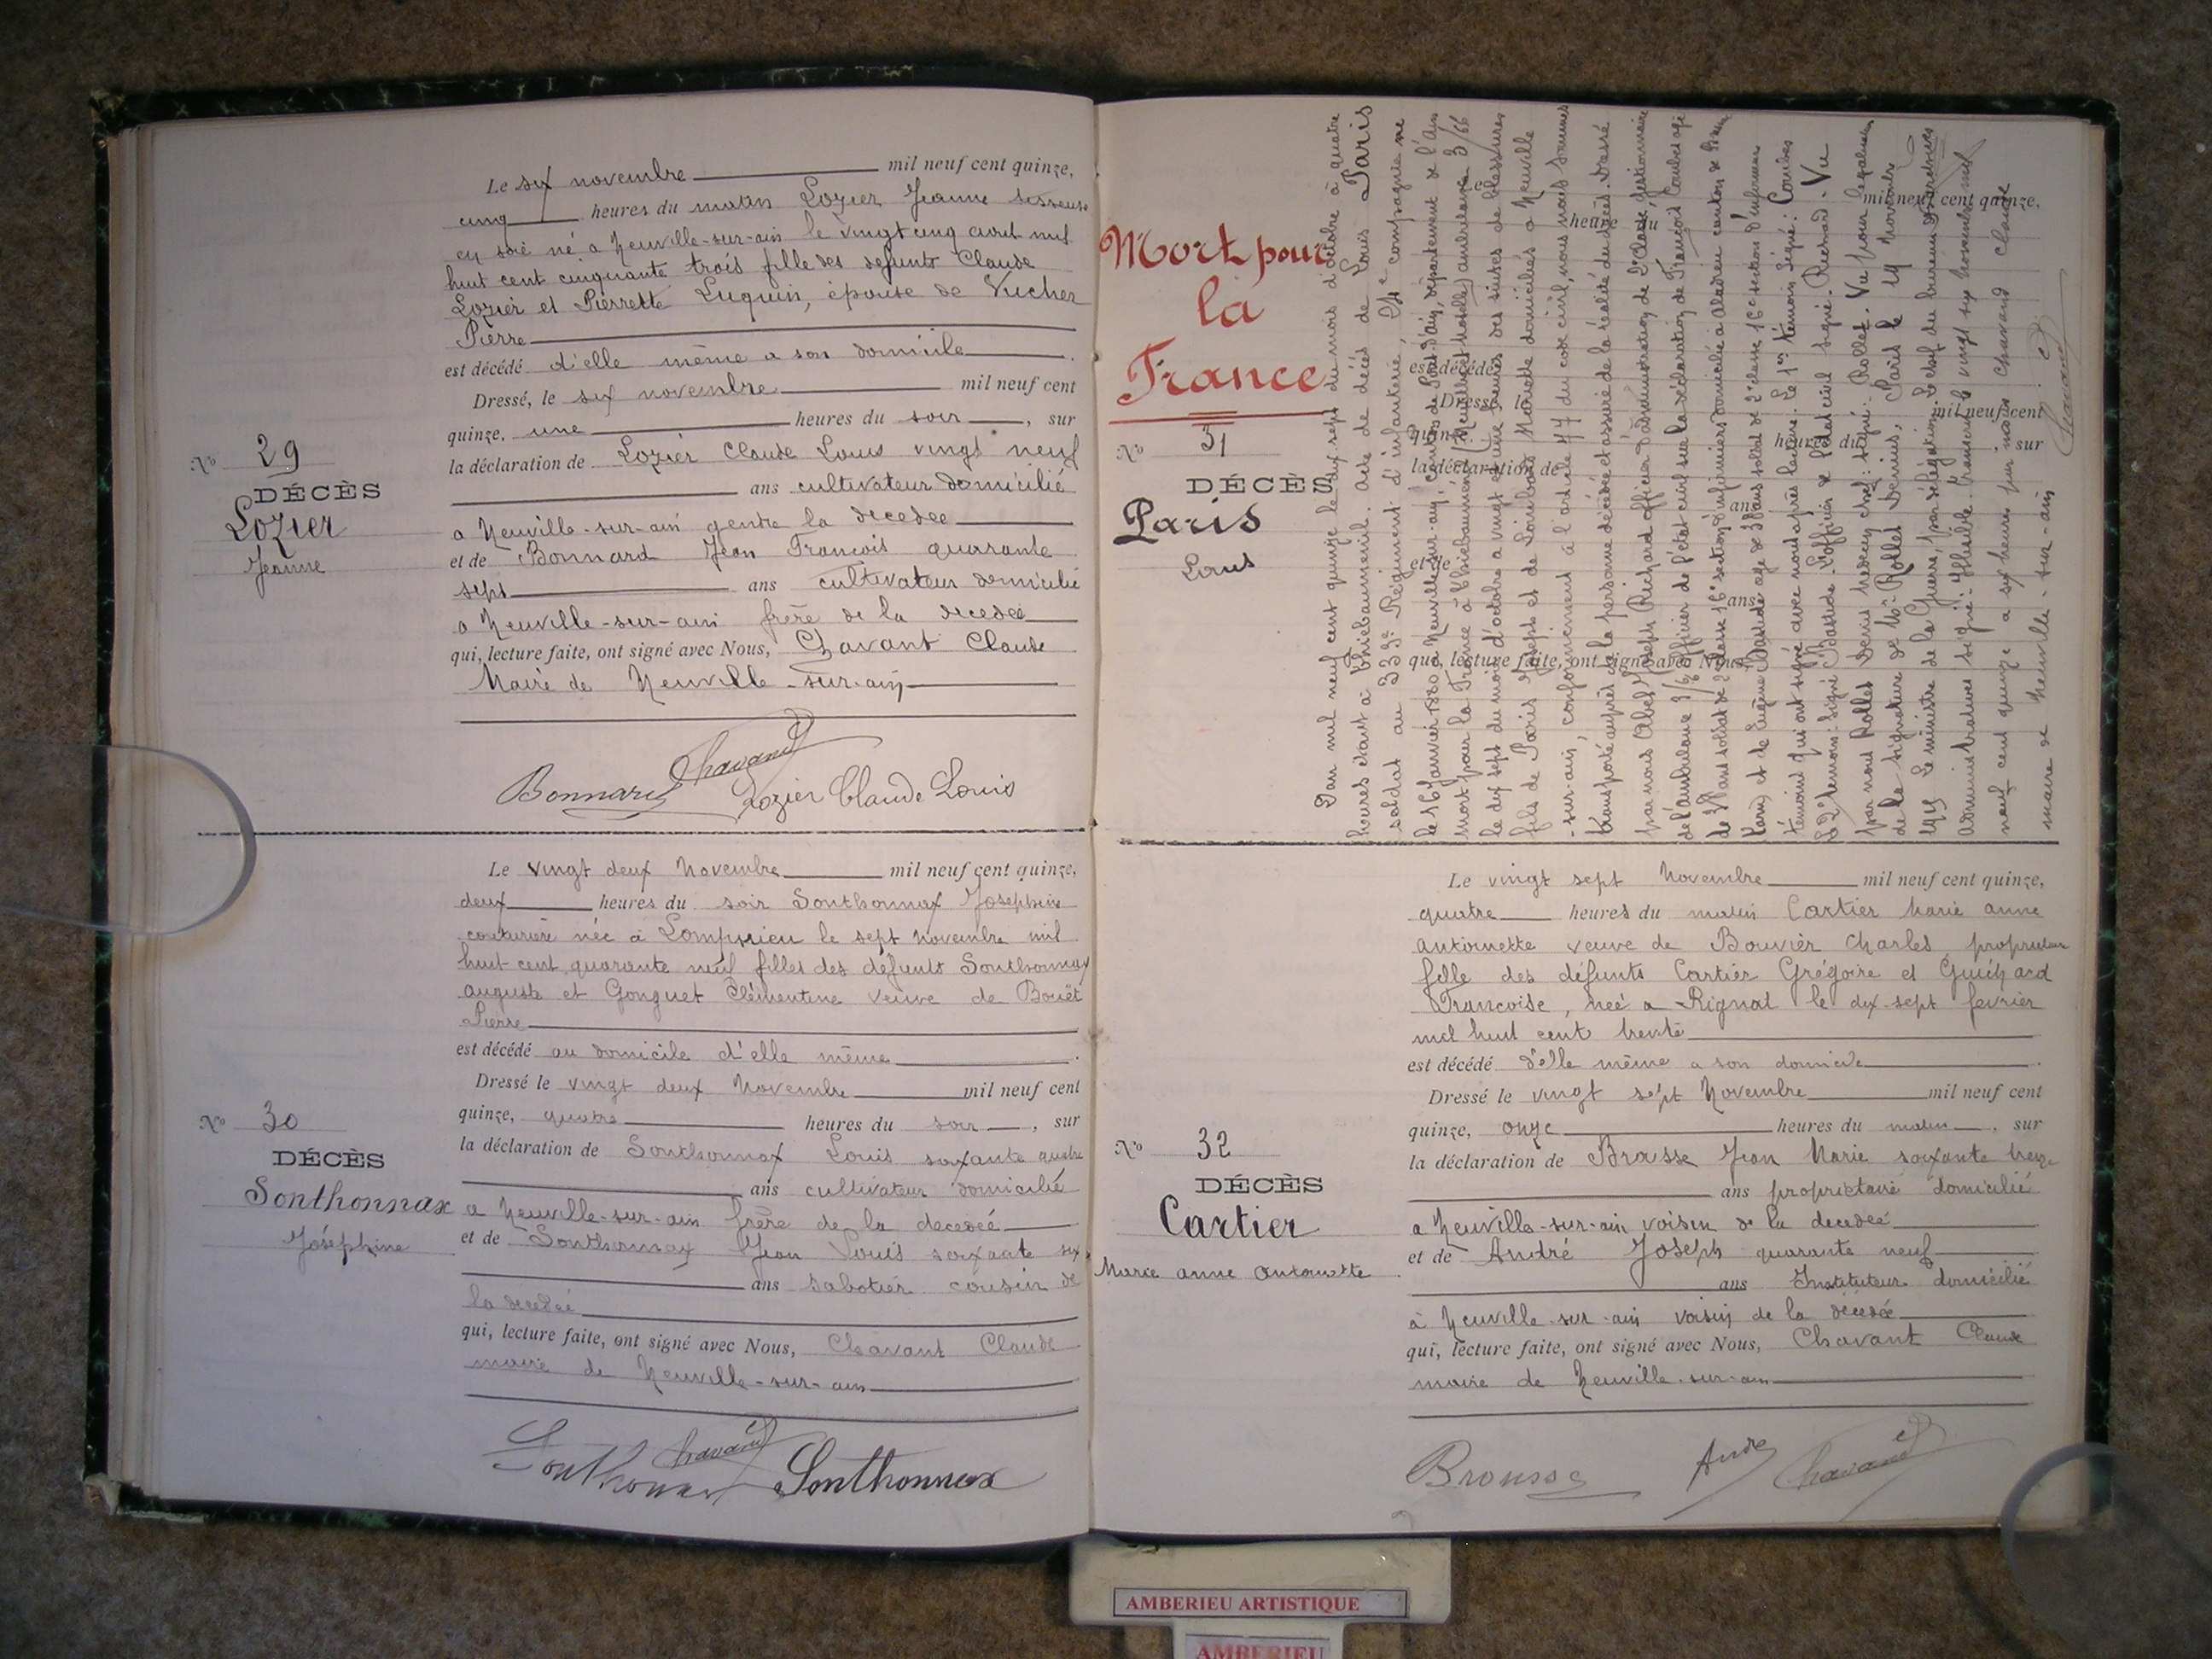 Le six novembre mil neuf cent quinze,
cinq heures du matin Lozier Jeanne
en soie né a Neuville-sur-ain le vingt cinq aout mil
huit cent cinquante trois fille des defunts Claude
Lozier et Pierrette Luquin, épouse de Vucher
Pierre
est décédé d'elle même a son domicile
Dressé, le six novembre mil neuf cent
quinze, une heures du soir, sur
la déclaration de Lozier Claude Louis vingt neuf
ans cultivateur domicilié
a Neuville-sur-ain gendre la decedee
et de Bonnard Jean François quarante
sept ans cultivateur domicilié
a Neuville-sur-ain frère de la decedeé
qui, lecture faite, ont signé avec Nous, Chavant Claude
Maire de Neuville-sur-ain
Chavant
Bonnard Lozier Claude Louis
No 29
DÉCÈS
Lozier
Jeanne
Le vingt deux Novembre mil neuf cent quinze,
deux heures du soir Sonthonnax Josephine
couturière née a Lompnieu le sept novembre mil
huit cent quarante neuf filles des défunts Sonthonnax
auguste et Gonguet Clémentine veuve de Bouët
Pierre
est décédé au domicile d'elle même
Dressé le vingt deux Novembre mil neuf cent
quinze, quatre heures du soir, sur
la déclaration de Sonthonnax Louis soixante quatre
ans cultivateur domicilié
a Neuville-sur-ain frère de la decedeé
et de Sonthonnax Jean Louis soixante six
ans sabotier cousin de
la decedeé
qui, lecture faite, ont signé avec Nous, Chavant Claude
maire de Neuville-sur-ain
Sonthonnax Chavant Sonthonnax
No 30
DÉCÈS
Sonthonnax
Joséphine
Mort pour
la
France
No 31
DÉCÈS
Paris
Louis
L'an mil neuf cent quinze le dix sept du mois d'octobre à quatre
heures étant à Thiebauménil. Acte de décès de Louis Paris
soldat au 333e Régiment d'infanterie, 24e compagnie né
le 16 janvier 1880 à Neuville-sur-ain, canton de Pont d'ain, département de l'Ain
Mort pour la France à Thiebauménil (Meurthe et Moselle) ambulance 3/66
le dix sept du mois d'octobre a vingt et une heures des suites de blessures
fils de Paris Joseph et de Louise Mariotte domiciliés a Neuville
-sur-ain, conformément à l'article 77 du code civil, nous nous sommes
transporté auprès de la personne décédée et assuré de la réalité du décès. Dressé
par nous Abel Joseph Richard officier d'administration de 2e classe gestionnaire
de l'ambulance 3/66 officier de l'état civil sur la déclaration de François Combes agé
de ans soldat de 2e classe 16e section d'infirmiers domicilié à
et de Eugène Bastide agé de ans soldat de 2e classe 16e section d'infirmiers
témoins qui ont signé avec nous après lecture. Le 1er témoin signé: Combes
Le 2e témoin: signé Bastide. L'officier de l'état civil signé. Richard. Vu
par nous Rollet Denis médecin chef: signé: Rollet. Vu pour légalisation
de la signature de Mr Rollet Denis, Paris le 19 Novembre
1915 Le ministre de la Guerre, par délégation. Le chef du bureau des archives
administratives signé: Illisible. Transcrit le vingt six novembre mil
neuf cent quinze a six heures par nous Chavand Claude
maire de Neuville-sur-ain
Chavant
mil neuf cent quinze,
heure du
est décédé
Dressé le
mil neuf cent
quinze
heures du
sur
la déclaration de
ans
et de
ans
qui, lecture faite, ont signé avec Nous,
Le vingt sept Novembre mil neuf cent quinze,
quatre heures du matin Cartier Marie anne
antoinette veuve de Bouvier Charles
fille des défunts Cartier Grégoire et Guichard
Françoise, neé a Rignat le dix-sept fevrier
mil huit cent trente
est décédé d'elle même a son domicile
Dressé le vingt sept Novembre mil neuf cent
quinze, onze heures du matin, sur
la déclaration de Brousse Jean Marie soixante treize
ans propriétaire domicilié
a Neuville-sur-ain voisin de la decedeé
et de André Joseph quarante neuf
ans Instituteur domicilié
à Neuville-sur-ain voisin de la décedée
qui, lecture faite, ont signé avec Nous, Chavant Claude
maire de Neuville-sur-ain
Brousse André Chavant
No 32
DÉCÈS
Cartier
Marie anne antoinette
AMBERIEU ARTISTIQUE
AMBERIEU